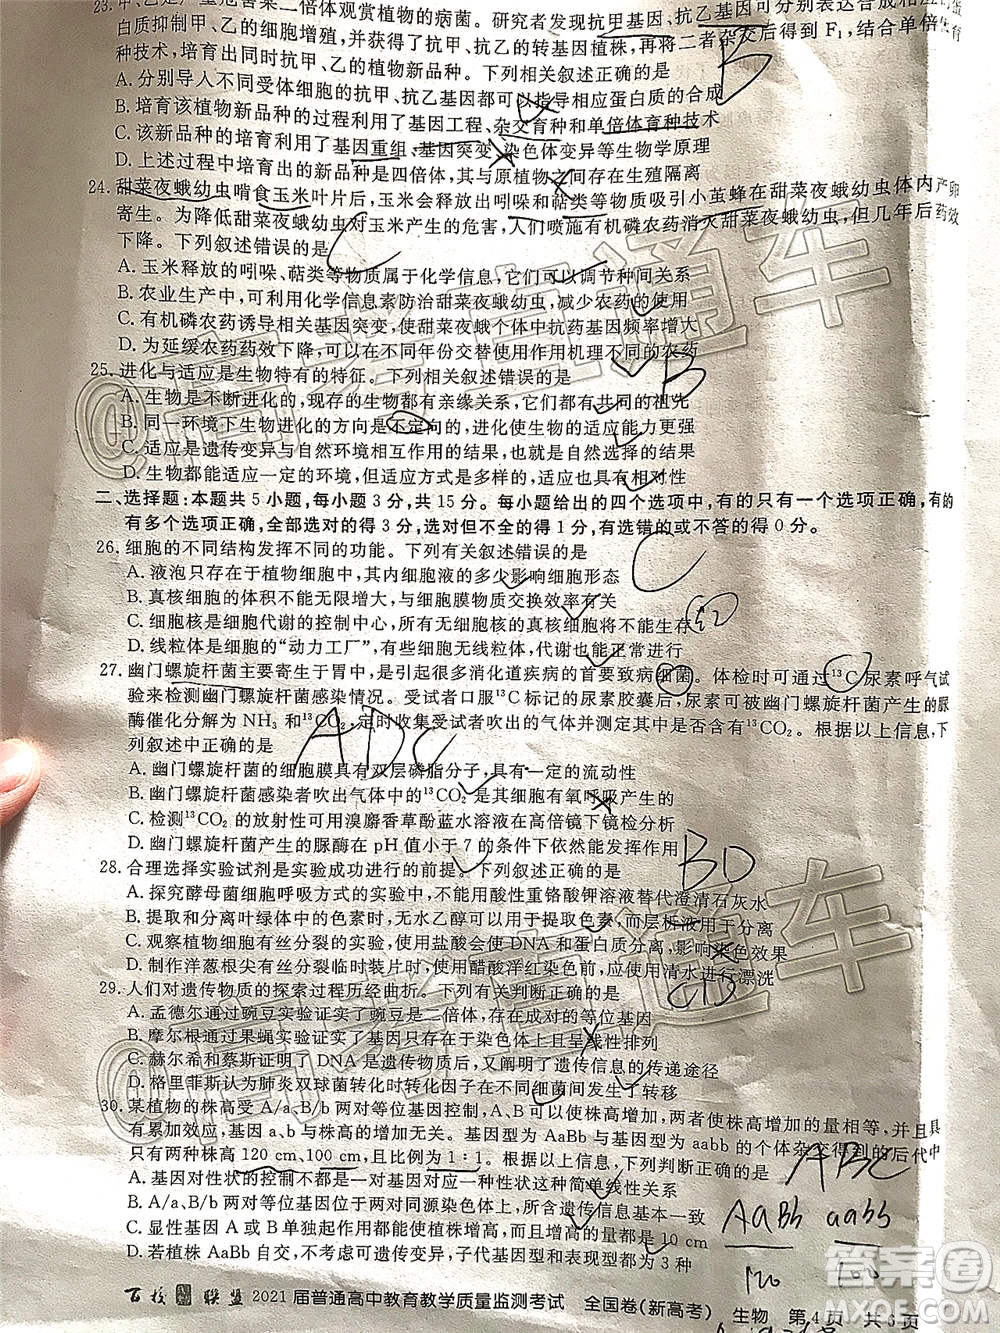 23. 甲、乙是严重危害某二倍体观赏植物的病菌。研究者发现抗甲基因、抗乙基因可分别表达合成相应的蛋
白质抑制甲、乙的细胞增殖,并获得了抗甲、抗乙的转基因植株,再将二者杂交后得到 F₁,结合单倍体育
种技术,培育出同时抗甲、乙的植物新品种。下列相关叙述正确的是
B
A. 分别导人不同受体细胞的抗甲、抗乙基因都可以指导相应蛋白质的合成
B. 培育该植物新品种的过程利用了基因工程、杂交育种和单倍体育种技术
C. 该新品种的培育利用了基因重组、基因突变、染色体变异等生物学原理
D. 上述过程中培育出的新品种是四倍体,其与原植物之间存在生殖隔离
24. 甜菜夜蛾幼虫啃食玉米叶片后,玉米会释放出吲哚和萜类等物质吸引小茧蜂在甜菜夜蛾幼虫体内产卵
寄生。为降低甜菜夜蛾幼虫对玉米产生的危害,人们喷施有机磷农药消灭甜菜夜蛾幼虫,但几年后药效
下降。下列叙述错误的是
C
A. 玉米释放的吲哚、萜类等物质属于化学信息,它们可以调节种间关系
B. 农业生产中,可利用化学信息素防治甜菜夜蛾幼虫,减少农药的使用
C. 有机磷农药诱导相关基因突变,使甜菜夜蛾个体中抗药基因频率增大
D. 为延缓农药药效下降,可以在不同年份交替使用作用机理不同的农药
25. 进化与适应是生物特有的特征。下列相关叙述错误的是
B
A. 生物是不断进化的,现存的生物都有亲缘关系,它们都有共同的祖先
B. 同一环境下生物进化的方向是不定向的,但新生物的适应能力更强
C. 适应是遗传变异与自然环境相互作用的结果,也是自然选择的结果
D. 生物都能适应一定的环境,但适应方式是多样的,也具有相对性
二、选择题:本题共 5 小题,每小题 3 分,共 15 分。每小题给出的四个选项中,有的只有一个选项正确,有的
有多个选项正确,全部选对的得 3 分,选对但不全的得 1 分,有选错的或不答的得 0 分。
26. 细胞的不同结构发挥不同的功能。下列有关叙述错误的是
C
A. 液泡只存在于植物细胞中,其内细胞液的多少影响细胞形态
B. 真核细胞的体积不能无限增大,与细胞膜物质交换效率有关
C. 细胞核是细胞代谢的控制中心,所有无细胞核的细胞都不能生存
D. 线粒体是细胞的“动力工厂”,有些细胞无线粒体,代谢也能正常进行
27. 幽门螺旋杆菌主要寄生于胃中,是引起很多消化道疾病的首要致病细菌。体检时可通过¹³C 尿素呼气试
验来检测幽门螺旋杆菌感染情况。受试者口服¹³C 标记的尿素胶囊后,尿素可被幽门螺旋杆菌产生的脲
酶催化分解为 NH₃ 和¹³CO₂,定时收集受试者吹出的气体并测定其中是否含有¹³CO₂。根据以上信息,下
列叙述中正确的是
ADC
A. 幽门螺旋杆菌的细胞膜具有双层磷脂分子,具有一定的流动性
B. 幽门螺旋杆菌感染者吹出气体中的¹³CO₂ 是其细胞有氧呼吸产生的
C. 检测¹³CO₂ 的放射性可用溴麝香草酚蓝水溶液在高倍镜下镜检分析
D. 幽门螺旋杆菌产生的脲酶在 pH 值小于 7 的条件下依然能发挥作用
28. 合理选择实验试剂是实验成功进行的前提。下列叙述错误的是
BD
A. 探究酵母菌细胞呼吸方式的实验中,不能用酸性重铬酸钾溶液替代澄清石灰水
B. 提取和分离叶绿体中的色素时,无水乙醇可以用于提取色素,而层析液用于分离
C. 观察植物细胞有丝分裂的实验,使用盐酸会使 DNA 和蛋白质分离,影响染色效果
D. 制作洋葱根尖有丝分裂临时装片时,使用醋酸洋红染色前,应使用清水进行漂洗
29. 人们对遗传物质的探索过程历经曲折。下列有关判断正确的是
CD
A. 孟德尔通过豌豆实验证实了豌豆是二倍体,存在成对的等位基因
B. 摩尔根通过果蝇实验证实了基因在染色体上且呈线性排列
C. 赫尔希和蔡斯证明了 DNA 是遗传物质后,又阐明了遗传信息的传递途径
D. 格里菲斯认为肺炎双球菌转化时转化因子在不同细菌间发生了转移
30. 某植物的株高受 A/a、B/b 两对等位基因控制,A、B 可以使株高增加,两者使株高增加的量相等,并且具
有累加效应。基因 a、b 与株高的增加无关。基因型为 AaBb 与基因型为 aabb 的个体杂交得到的后代中
只有两种株高 120 cm、100 cm,且比例为 1∶1。根据以上信息,下列判断正确的是
ABC
A. 基因对性状的控制不都是一对基因对应一种性状这种简单线性关系
B. A/a、B/b 两对等位基因位于一对同源染色体上,所含遗传信息基本一致
C. 显性基因 A 或 B 单独作用都能使植株增高,而且增高的量都是 10 cm
D. 若植株 AaBb 自交,不考虑可遗传变异,子代基因型和表现型都为 3 种
AaBb aabb
120 100
百校联盟 2021 届普通高中教育教学质量监测考试 全国卷(新高考) 生物 第 4 页 共 6 页
@高考直通车
@高考直通车
答案圈